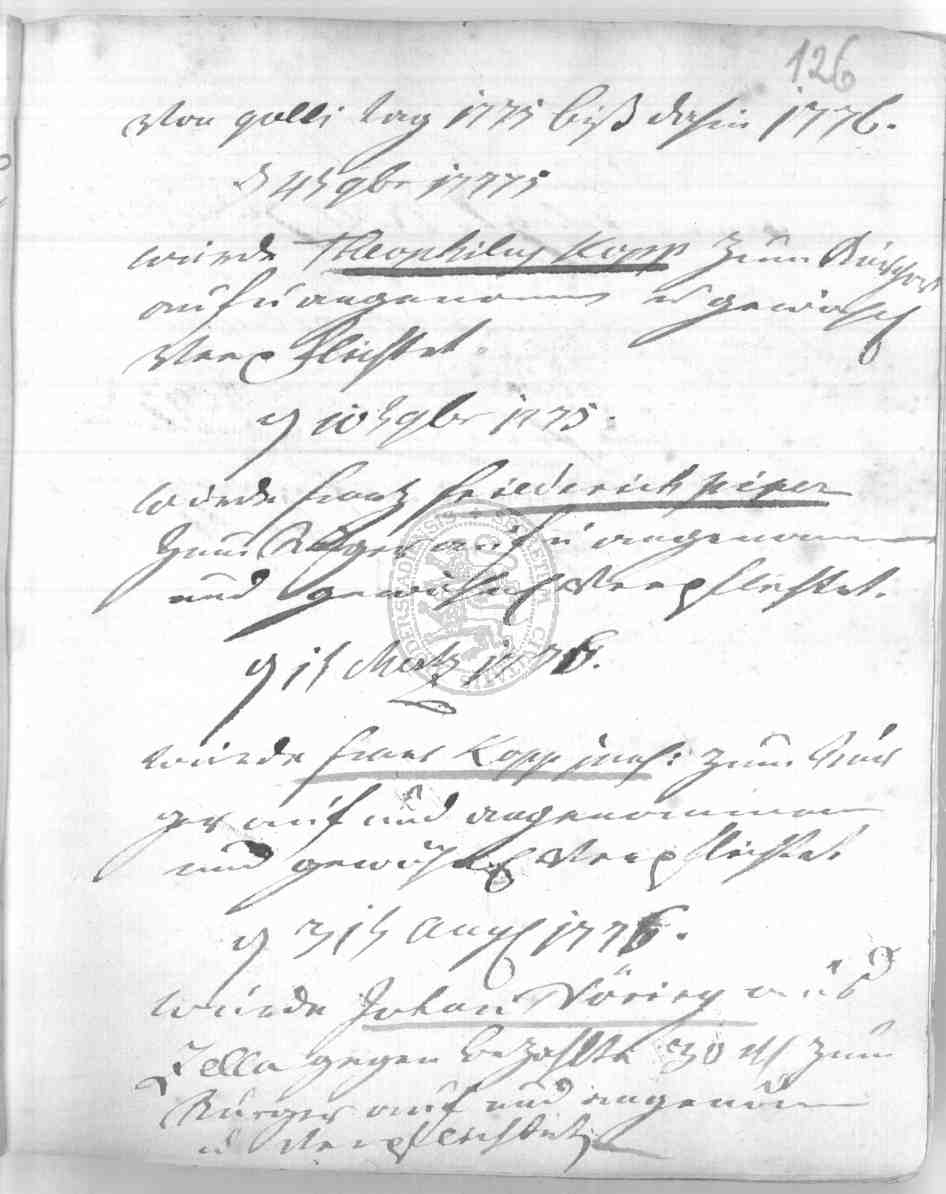 126
Von galli tag 1775 biß dahin 1776.
9br 1775
wurde Theophilus Kopp zum Bürger
auf u angenomen u gewöhnl
Verpflichtet.
d 10 9br 1775.
wurde Frantz Friederich piper
zum Bürger auf u angenomen
und gewöhnl Verpflichtet.
d 15 Mertz 1776.
wurde Kopp zum Bür
ger auf und angenommen
und gewöhnl Verpflichtet
d 31 Aug 1776.
wurde Johan Döring aus
Zella gegen bezahlte 30 zum
Burger auf und angenom
u Verpflichtet